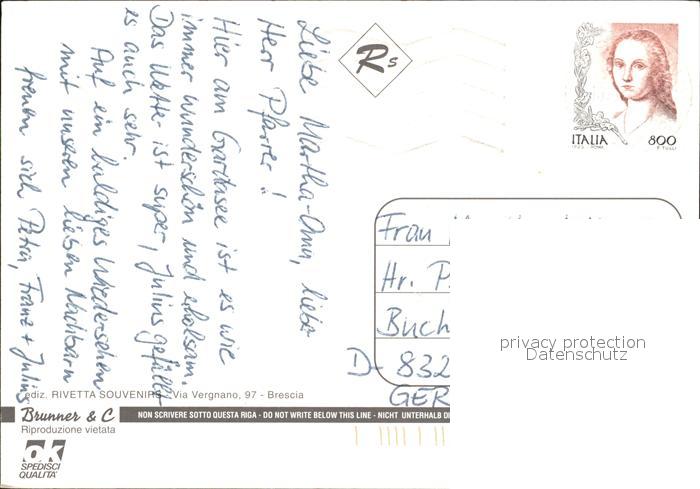 Liebe Martha-Oma, liebe
Herr Pfarrer!
Hier am Gardasee ist es wie
immer wunderschön und erholsam.
Das Wetter ist super, Julius gefällt
es auch sehr.
Auf ein baldiges Wiedersehen
mit unseren lieben Nachbarn
freuen sich Petra, Franz + Julius
Rs
ITALIA 800
Frau
Hr. P.
Buch
D- 832
GER
privacy protection
Datenschutz
ediz. RIVETTA SOUVENIRS - Via Vergnano, 97 - Brescia
Brunner & C
NON SCRIVERE SOTTO QUESTA RIGA - DO NOT WRITE BELOW THIS LINE - NICHT UNTERHALB DI
Riproduzione vietata
ok
SPEDISCI
QUALITA'